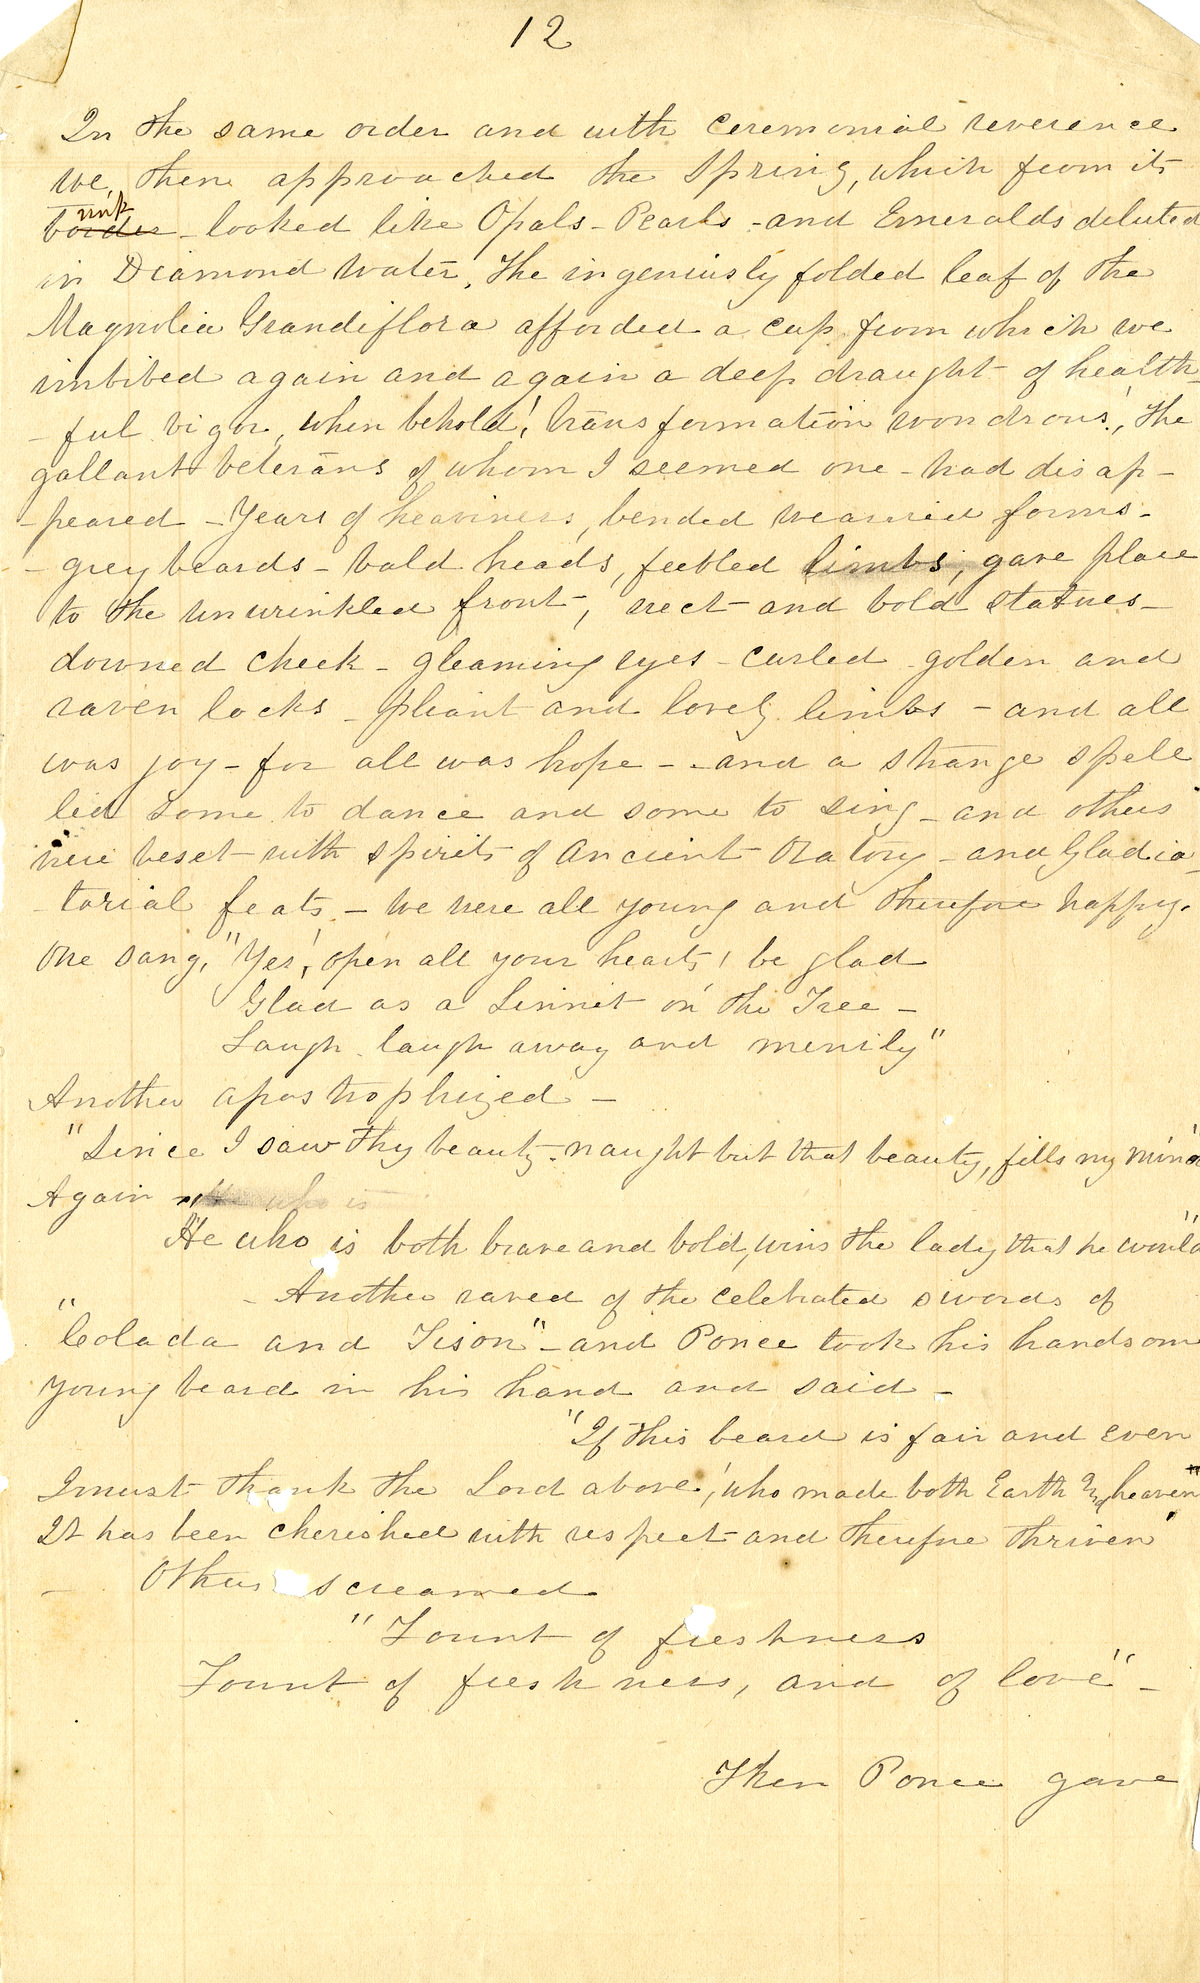 12
In the same order and with Ceremonial reverence
we, then approached the Spring, which from its
brink
border - looked like Opals - Pearls - and Emeralds diluted
in Diamond water, The ingeniusly folded leaf of the
Magnolia Grandiflora afforded a cup from which we
imbibed again and again a deep draught of health-
- ful vigor, when behold! transformation wondrous!, The
gallant veterans of whom I seemed one - had disap-
- peared - Years of heaviness, bended wearied forms -
- grey beards - bald heads, feebled limbs, gave place
to the unwrinkled front, erect and bold statues -
downed cheek - gleaming eyes - curled golden and
raven locks - pliant and lovely limbs - and all
was joy - for all was hope - - and a strange spell
led some to dance and some to sing - and others
were beset with spirits of Ancient Oratory - and Gladia-
- torial feats - We were all young and therefore happy.
One sang, "Yes!, open all your hearts! be glad
Glad as a Linnet on the Tree -
Laugh laugh away and merrily"
Another apostrophized -
"Since I saw thy beauty - naught but that beauty, fills my mind"
Again who is
"He who is both brave and bold, wins the lady that he would"
- Another raved of the celebrated swords of
"Colada and Tison" - and Ponce took his handsome
young beard in his hand and said -
"If this beard is fair and even
I must thank the Lord above!, who made both Earth and heaven"
It has been cherished with respect and therefore thriven"
- Others screamed
"Fount of freshness
Fount of freshness, and of love" -
Then Ponce gave